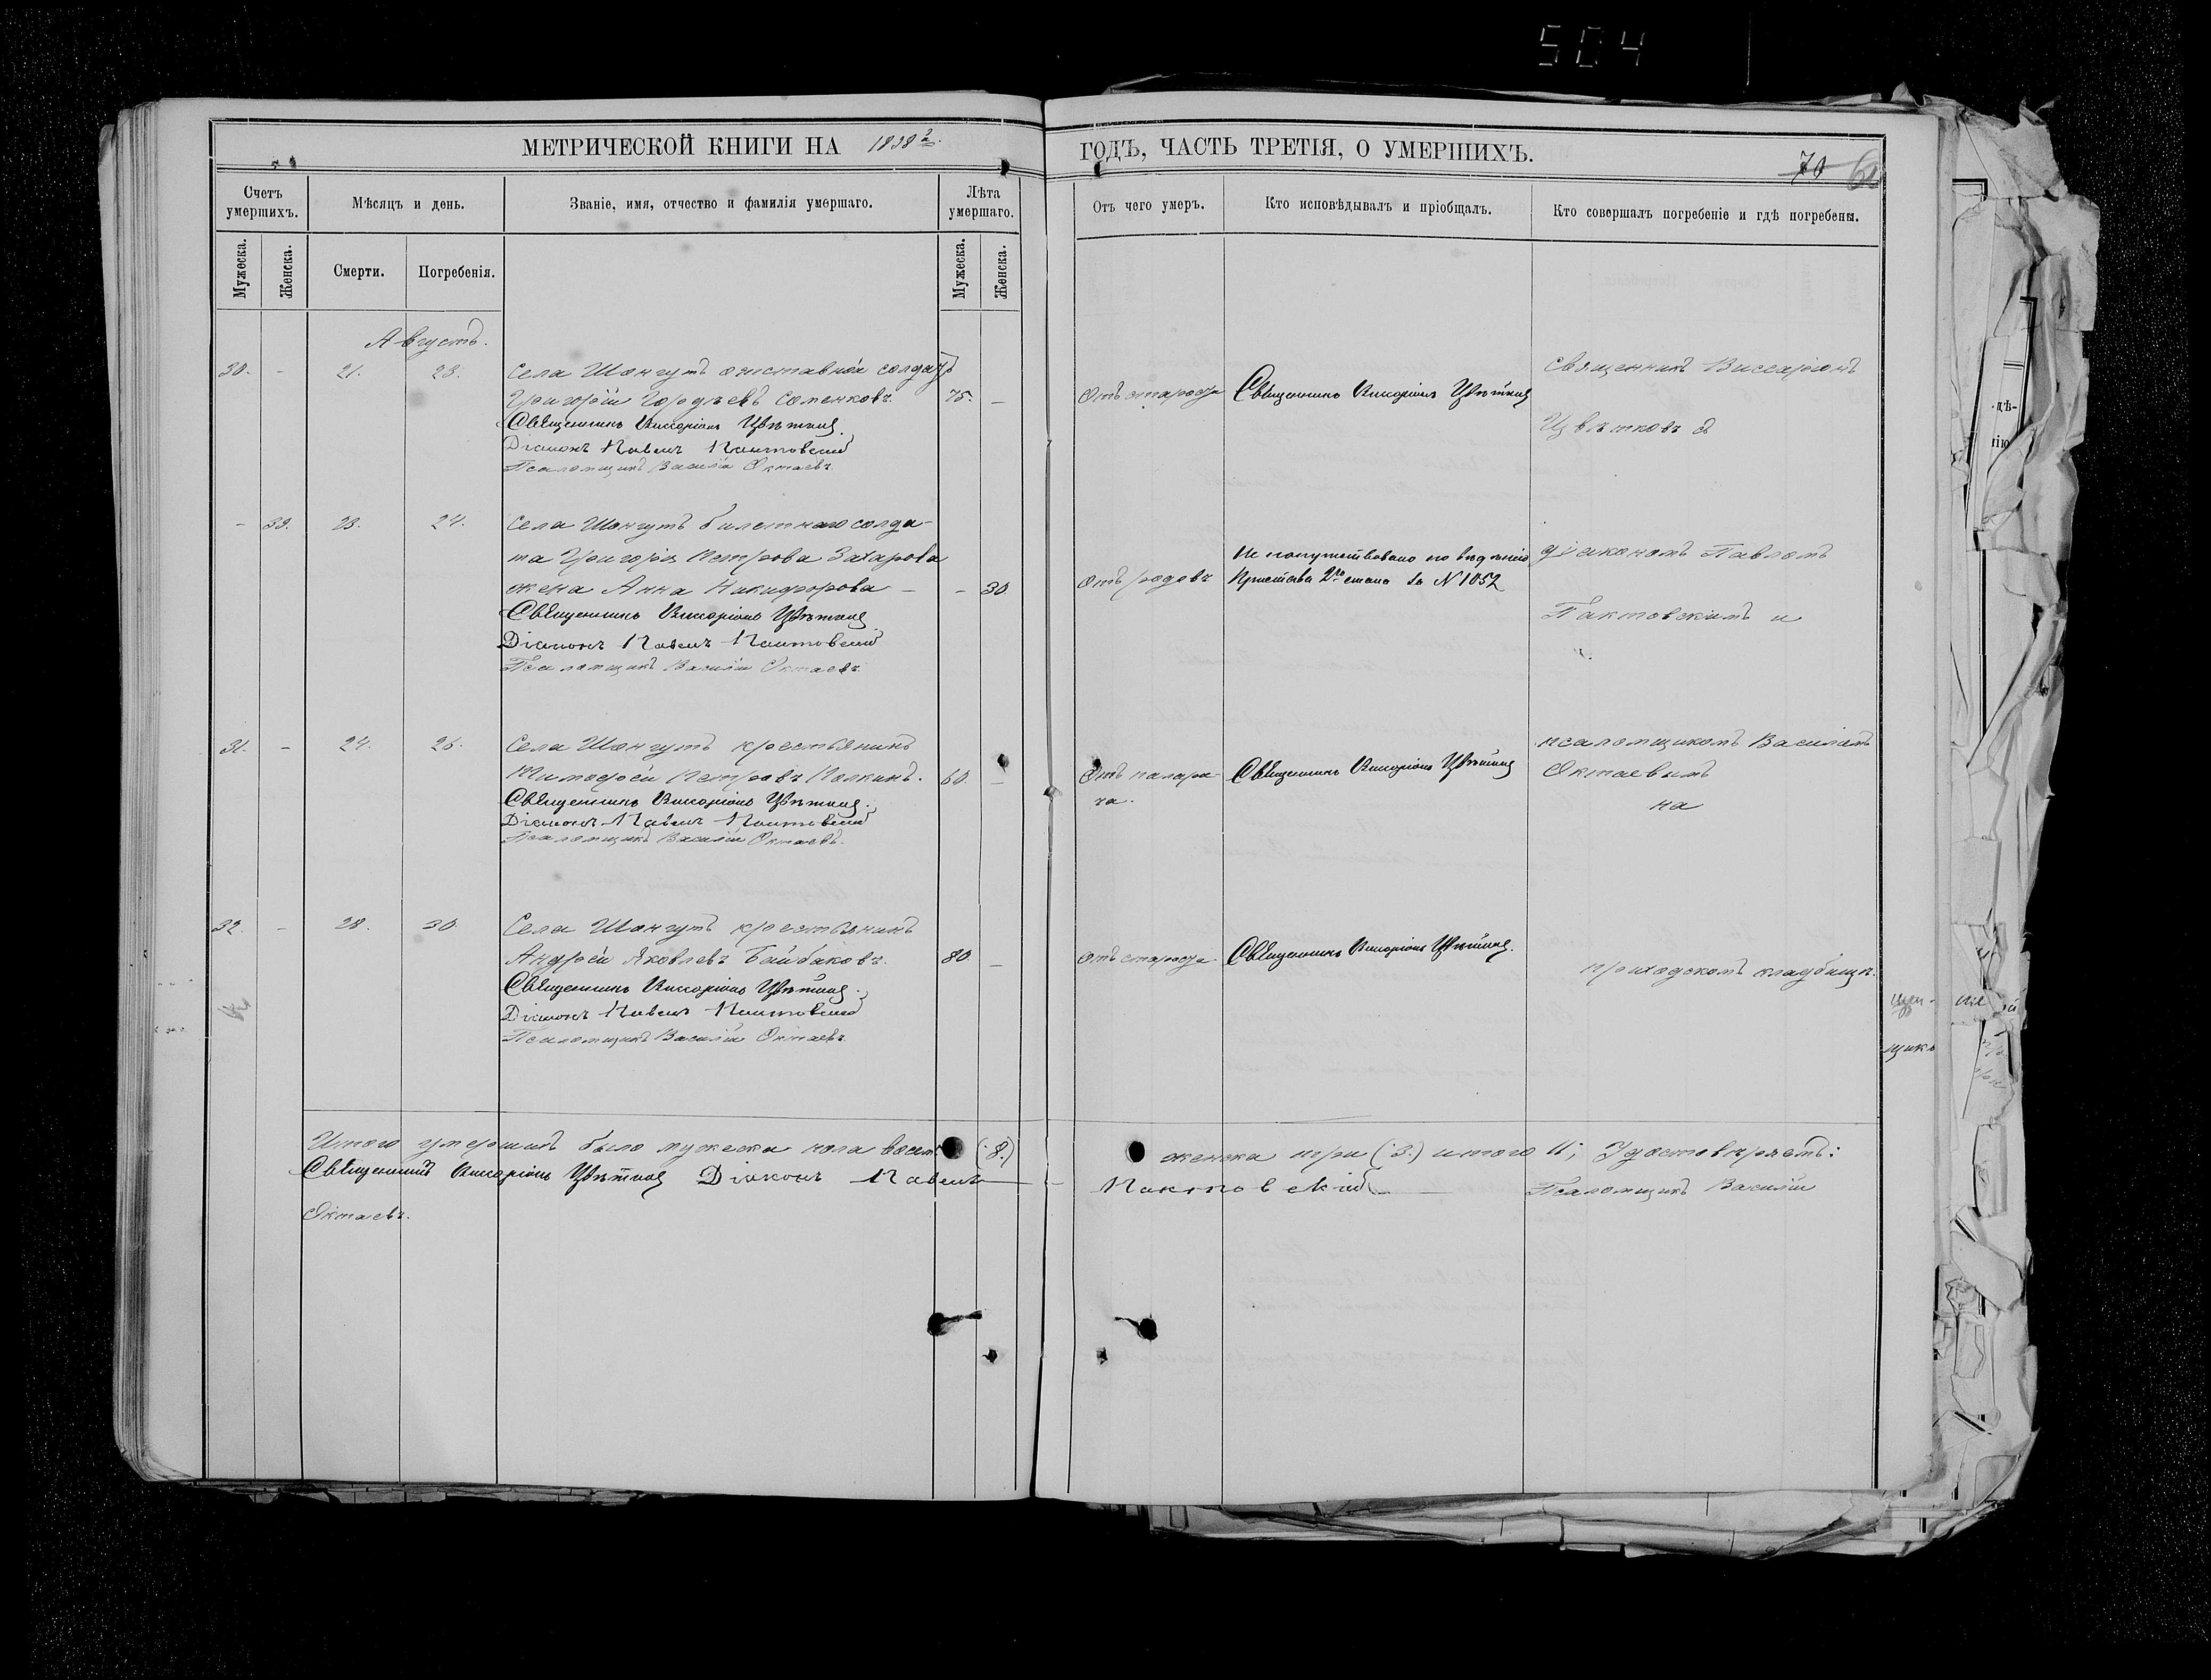 504
МЕТРИЧЕСКОЙ КНИГИ НА 1898 г. ГОДЪ, ЧАСТЬ ТРЕТІЯ, О УМЕРШИХЪ.
70
Счетъ умершихъ.
Мѣсяцъ и день.
Званіе, имя, отчество и фамилія умершаго.
Лѣта умершаго.
Отъ чего умеръ.
Кто исповѣдывалъ и пріобщалъ.
Кто совершалъ погребеніе и гдѣ погребены.
Мужеска.
Женска.
Смерти.
Погребенія.
Мужеска.
Женска.
Августъ.
30. - 21. 23. Села Шонгутъ отставной солдатъ
Григорій Гордѣевъ Соменковъ. 75. — Отъ старости Священникъ Виссаріонъ Цвѣтковъ
Священникъ Виссаріонъ Цвѣтковъ.
Діаконъ Павелъ Пактовскій
Псаломщикъ Василій Октаевъ.
Священникъ Виссаріонъ
Цвѣтковъ съ
- 33. 23. 24. Села Шонгутъ билетнаго солда-
та Григорія Петрова Захарова
жена Анна Никифорова — - 30 Отъ родовъ
Не напутствовано по вѣдѣнію
Пристава 2го стана за № 1052
Священникъ Виссаріонъ Цвѣтковъ.
Діаконъ Павелъ Пактовскій
Псаломщикъ Василій Октаевъ.
діакономъ Павломъ
Пактовскимъ и
31. - 24. 26. Села Шонгутъ крестьянинъ
Тимофей Петровъ Полкинъ. 60. — Отъ парали-
ча.
Священникъ Виссаріонъ Цвѣтковъ
Священникъ Виссаріонъ Цвѣтковъ.
Діаконъ Павелъ Пактовскій
Псаломщикъ Василій Октаевъ.
псаломщикомъ Василіемъ
Октаевымъ
на
32. - 28. 30. Села Шонгутъ крестьянинъ
Андрей Яковлевъ Байбаковъ. 80 — Отъ старости. Священникъ Виссаріонъ Цвѣтковъ.
Священникъ Виссаріонъ Цвѣтковъ.
Діаконъ Павелъ Пактовскій
Псаломщикъ Василій Октаевъ.
приходскомъ кладбищѣ.
щикъ
Итого умершихъ было мужеска пола восемь (8.) женска три (3.) итого 11; Удостовѣряетъ:
Священникъ Виссаріонъ Цвѣтковъ Діаконъ Павелъ Пактовскій Псаломщикъ Василій
Октаевъ.